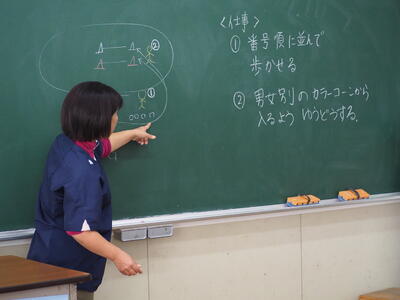 ②
①
<仕事>
① 番号順に並んで
歩かせる
② 男女別のカラーコーンから
入るよう ゆうどうする。